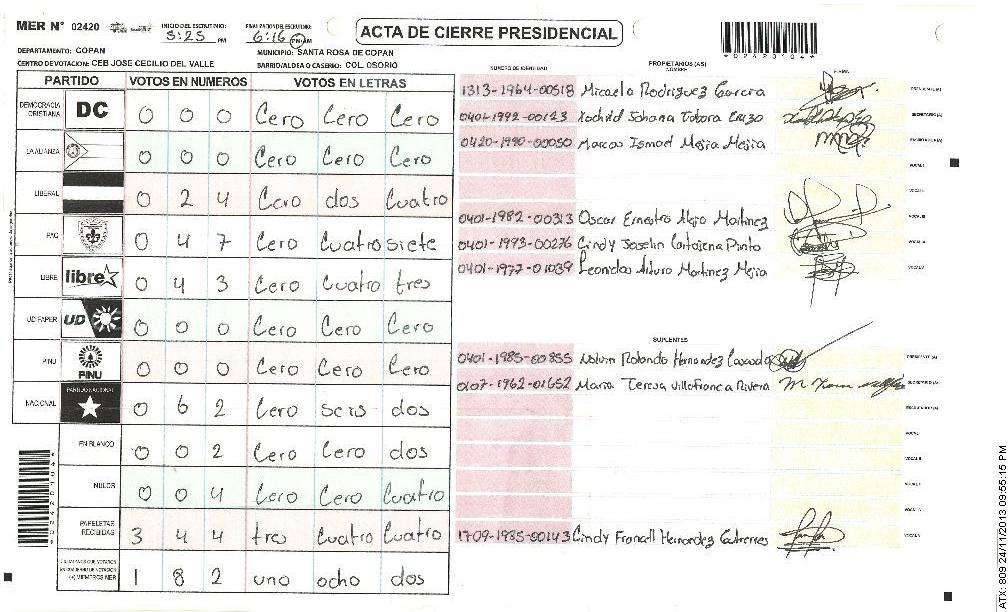 MER N° 02420
INICIO DEL ESCRUTINIO:
5:25 PM
FINALIZACION DEL ESCRUTINIO:
6:16 PM AM
ACTA DE CIERRE PRESIDENCIAL
*02420104*
DEPARTAMENTO: COPAN
MUNICIPIO: SANTA ROSA DE COPAN
CENTRO DE VOTACION: CEB JOSE CECILIO DEL VALLE
BARRIO/ALDEA O CASERIO: COL. OSORIO
PARTIDO VOTOS EN NUMEROS VOTOS EN LETRAS
DEMOCRACIA CRISTIANA DC 0 0 0 Cero Cero Cero
LA ALIANZA 0 0 0 Cero Cero Cero
LIBERAL 0 2 4 Cero dos Cuatro
PAC 0 4 7 Cero Cuatro siete
LIBRE libre 0 4 3 Cero Cuatro tres
UD FAPER UD 0 0 0 Cero Cero Cero
PINU PINU 0 0 0 Cero Cero Cero
NACIONAL PARTIDO NACIONAL 0 6 2 Cero seis dos
EN BLANCO 0 0 2 Cero Cero dos
NULOS 0 0 4 Cero Cero Cuatro
PAPELETAS RECIBIDAS 3 4 4 tres Cuatro Cuatro
CIUDADANOS QUE VOTARON EN CUADERNO DE VOTACION (+) MIEMBROS MER 1 8 2 uno ocho dos
PROPIETARIOS (AS)
NUMERO DE IDENTIDAD NOMBRE FIRMA
1313-1964-00518 Micaela Rodriguez Garcia PRESIDENTE (A)
0401-1992-00123 Xochild Johana Tabora Erazo SECRETARIO (A)
0420-1990-00050 Marcos Ismael Mejia Mejia ESCRUTADOR (A)
VOCAL I
VOCAL II
0401-1982-00313 Oscar Ernestro Alejo Martinez VOCAL III
0401-1993-00276 Cindy Joselin Cartajena Pinto VOCAL IV
0401-1977-01039 Leonidas Arturo Martinez Mejia VOCAL V
SUPLENTES
0401-1985-00855 Rolando Hernandez PRESIDENTE (A)
0107-1962-01652 Maria Teresa Villafranca Rivera SECRETARIO (A)
ESCRUTADOR (A)
VOCAL I
VOCAL II
VOCAL III
VOCAL IV
1709-1985-00143 Cindy Francell Hernandez Gutierres VOCAL V
ATX: 809 24/11/2013 09:55:15 PM